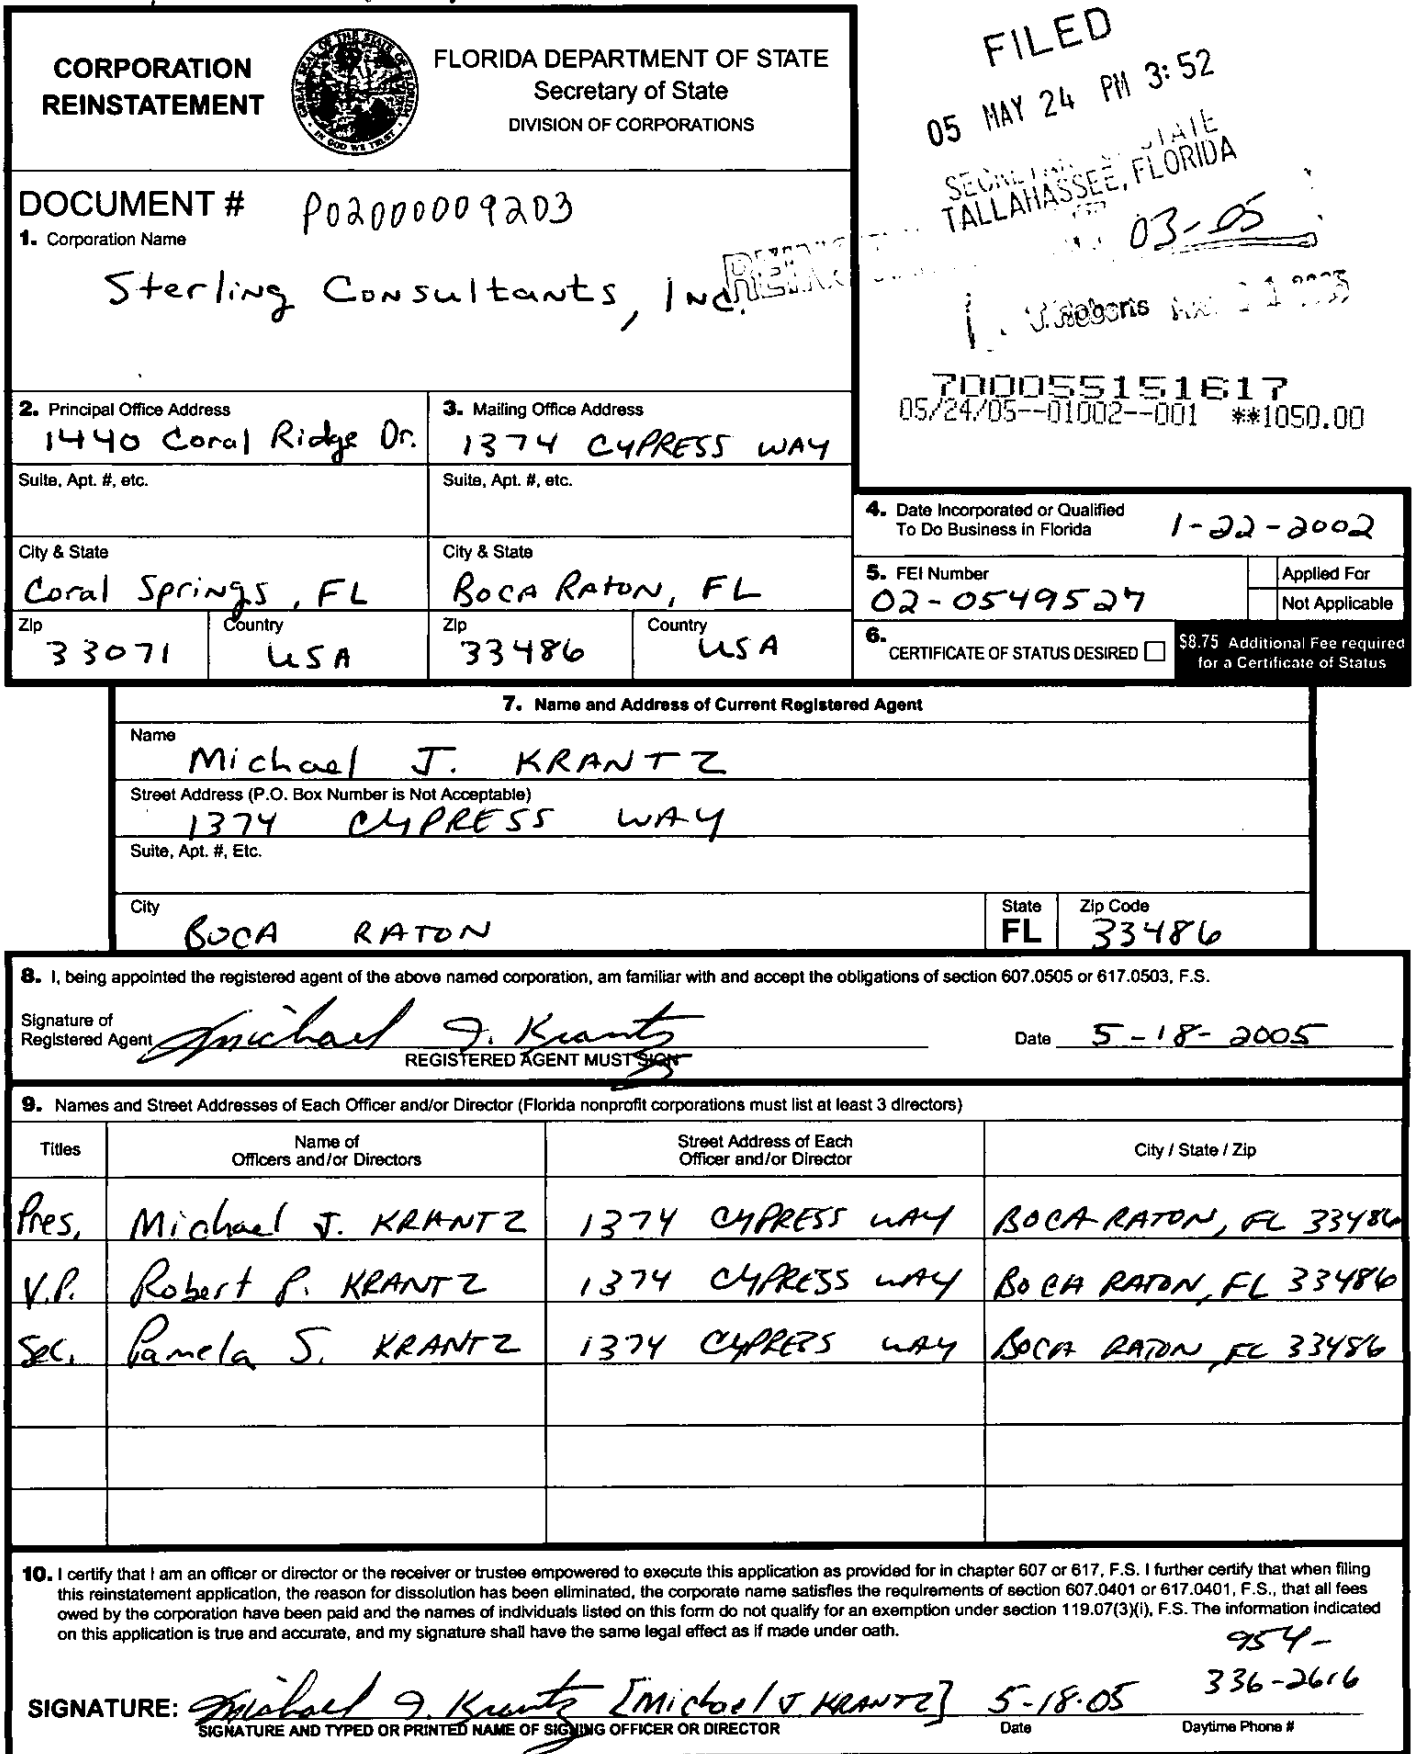 CORPORATION
REINSTATEMENT
FLORIDA DEPARTMENT OF STATE
Secretary of State
DIVISION OF CORPORATIONS
FILED
05 MAY 24 PM 3:52
TALLAHASSEE, FLORIDA
03-05
J. Roberts
7000055151617
05/24/05--01002--001 **1050.00
DOCUMENT # P02000009203
1. Corporation Name
Sterling Consultants, Inc.
2. Principal Office Address
1440 Coral Ridge Dr.
3. Mailing Office Address
1374 CYPRESS WAY
Suite, Apt. #, etc.
Suite, Apt. #, etc.
City & State
Coral Springs, FL
City & State
BOCA RATON, FL
Zip
33071
Country
USA
Zip
33486
Country
USA
4. Date Incorporated or Qualified
To Do Business in Florida 1-22-2002
5. FEI Number
02-0549527
Applied For
Not Applicable
6. CERTIFICATE OF STATUS DESIRED
$8.75 Additional Fee required
for a Certificate of Status
7. Name and Address of Current Registered Agent
Name
Michael J. KRANTZ
Street Address (P.O. Box Number is Not Acceptable)
1374 CYPRESS WAY
Suite, Apt. #, Etc.
City
BOCA RATON
State
FL
Zip Code
33486
8. I, being appointed the registered agent of the above named corporation, am familiar with and accept the obligations of section 607.0505 or 617.0503, F.S.
Signature of
Registered Agent Michael J. Krantz
REGISTERED AGENT MUST SIGN
Date 5-18-2005
9. Names and Street Addresses of Each Officer and/or Director (Florida nonprofit corporations must list at least 3 directors)
Titles
Name of
Officers and/or Directors
Street Address of Each
Officer and/or Director
City / State / Zip
Pres. Michael J. KRANTZ 1374 CYPRESS WAY BOCA RATON, FL 33486
V.P. Robert P. KRANTZ 1374 CYPRESS WAY BOCA RATON, FL 33486
Sec. Pamela S. KRANTZ 1374 CYPRESS WAY BOCA RATON, FL 33486
10. I certify that I am an officer or director or the receiver or trustee empowered to execute this application as provided for in chapter 607 or 617, F.S. I further certify that when filing
this reinstatement application, the reason for dissolution has been eliminated, the corporate name satisfies the requirements of section 607.0401 or 617.0401, F.S., that all fees
owed by the corporation have been paid and the names of individuals listed on this form do not qualify for an exemption under section 119.07(3)(i), F.S. The information indicated
on this application is true and accurate, and my signature shall have the same legal effect as if made under oath.
954-
336-2616
SIGNATURE: Michael J. Krantz [Michael J KRANTZ] 5-18-05
SIGNATURE AND TYPED OR PRINTED NAME OF SIGNING OFFICER OR DIRECTOR
Date
Daytime Phone #